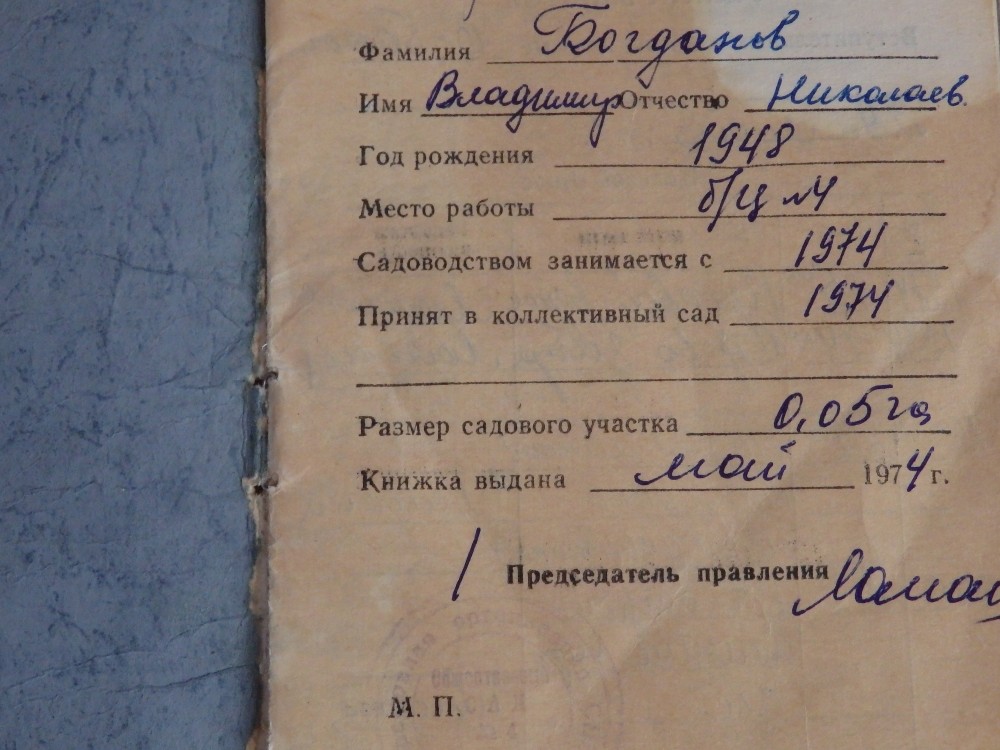 Фамилия Богданов
Имя Владимир Отчество Николаев.
Год рождения 1948
Место работы б/ц №4
Садоводством занимается с 1974
Принят в коллективный сад 1974
Размер садового участка 0,05га
Книжка выдана май 1974 г.
Председатель правления
М. П.